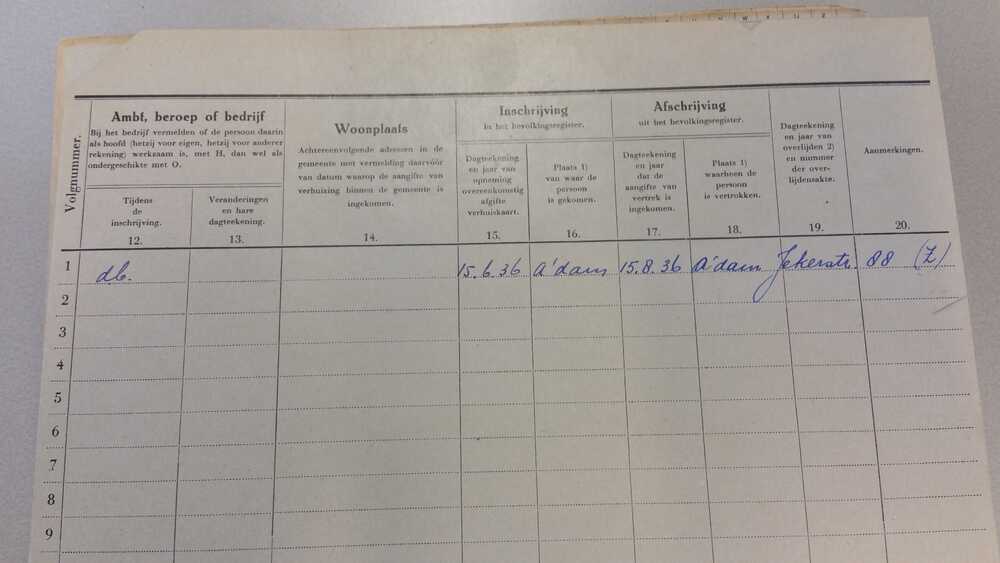 Volgnummer.
Ambt, beroep of bedrijf
Bij het bedrijf vermelden of de persoon daarin
als hoofd (hetzij voor eigen, hetzij voor anderer
rekening) werkzaam is, met H, dan wel als
ondergeschikte met O.
Tijdens
de
inschrijving.
12.
Veranderingen
en hare
dagteekening.
13.
Woonplaats
Achtereenvolgende adressen in de
gemeente met vermelding daarvóór
van datum waarop de aangifte van
verhuizing binnen de gemeente is
ingekomen.
14.
Inschrijving
in het bevolkingsregister.
Dagteekening
en jaar van
opneming
overeenkomstig
afgifte
verhuiskaart.
15.
Plaats 1)
van waar de
persoon
is gekomen.
16.
Afschrijving
uit het bevolkingsregister.
Dagteekening
en jaar
dat de
aangifte van
vertrek is
ingekomen.
17.
Plaats 1)
waarheen de
persoon
is vertrokken.
18.
Dagteekening
en jaar van
overlijden 2)
en nummer
der over-
lijdensakte.
19.
Aanmerkingen.
20.
1 db. 15.6.36 A'dam 15.8.36 A'dam Jekerstr. 88 (Z)
2
3
4
5
6
7
8
9